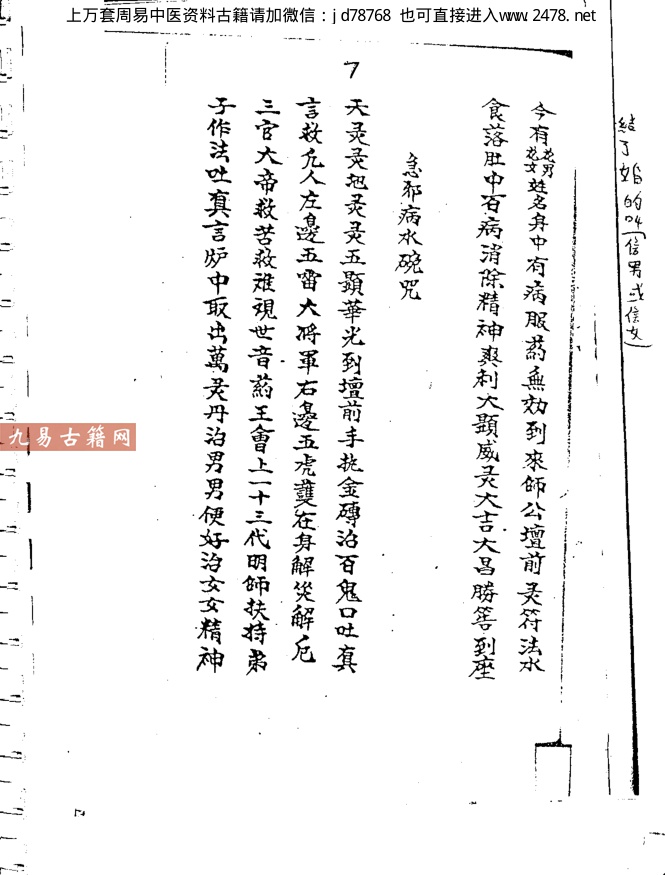 上万套周易中医资料古籍请加微信：jd78768 也可直接进入www.2478.net
7
结了婚的叫（信男或信女）
今有花男花女姓名身中有病服药無効到來師公壇前灵符法水
食落肚中百病消除精神爽利大顕威灵大吉大昌勝筶到座
急邪病水碗咒
天灵灵地灵灵五顕華光到壇前手执金磚治百鬼口吐真
言救凢人左邊五雷大將軍右邊五虎護在身解災解厄
三官大帝救苦救难观世音药王會上一十三代明師扶持弟
子作法吐真言炉中取出萬灵丹治男男便好治女女精神
九易古籍网